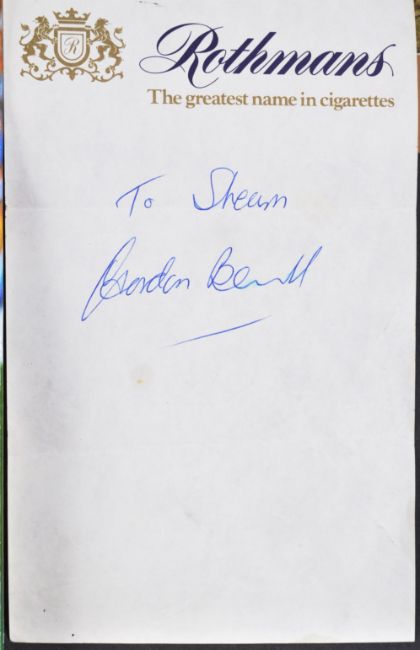 R
Rothmans
The greatest name in cigarettes
To
Gordon